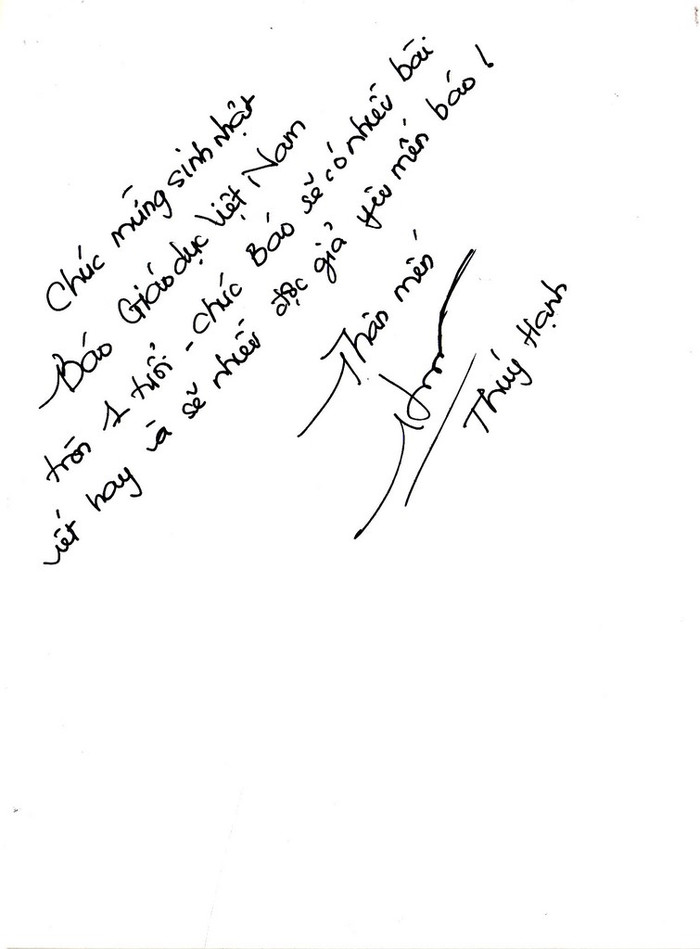 Chúc mừng sinh nhật
Báo Giáo dục Việt Nam
tròn 1 tuổi - chúc Báo sẽ có nhiều bài
viết hay và sẽ nhiều độc giả yêu mến báo!
Thân mến
Thúy Hạnh